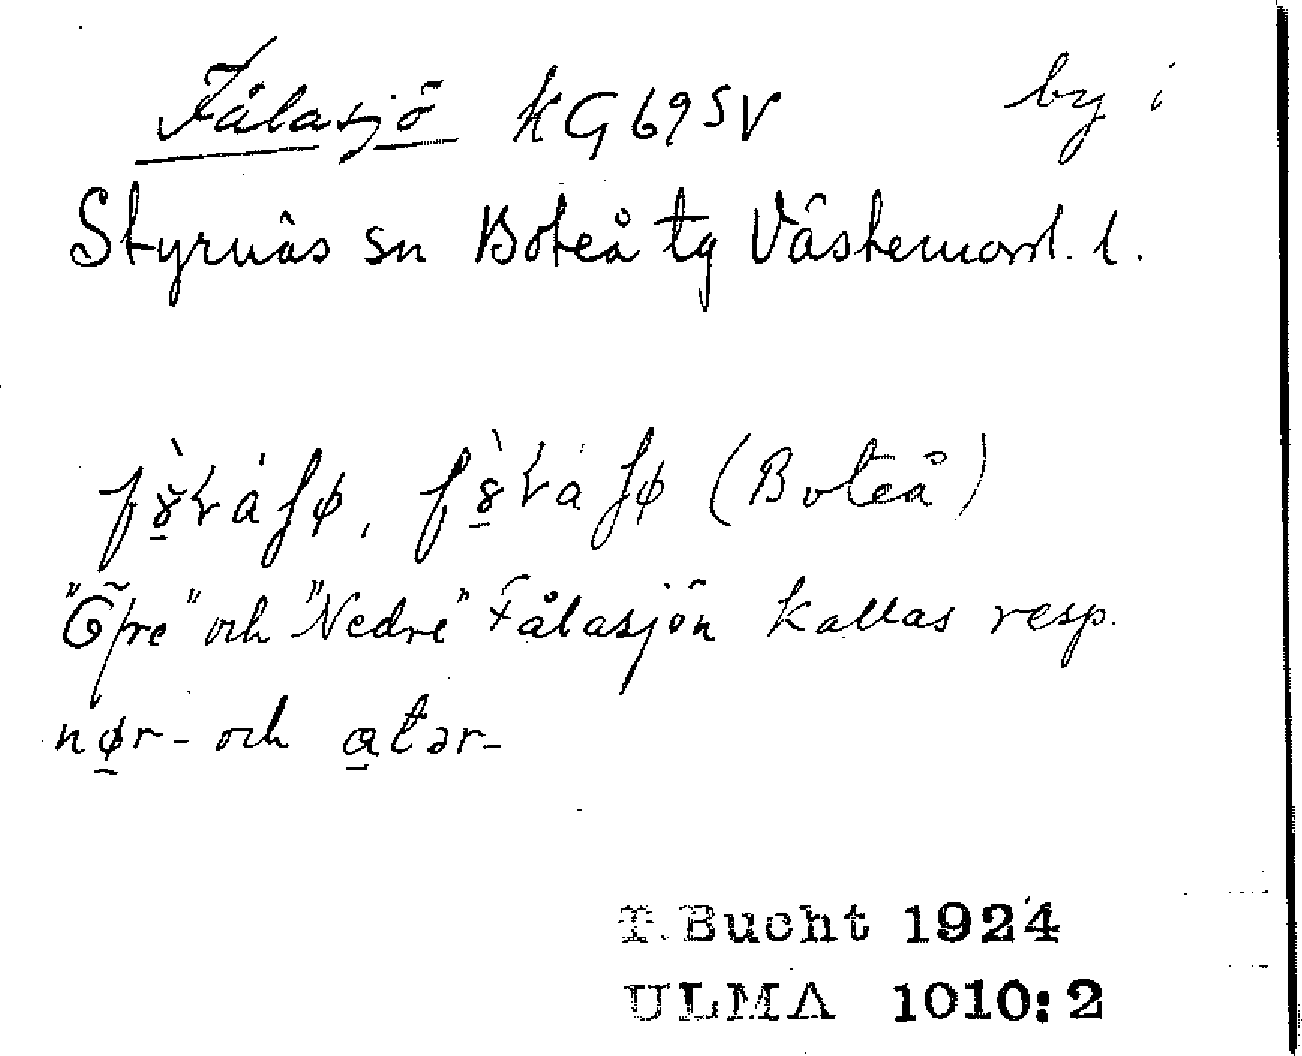 Fålasjö KG69SV by i
Styrnäs sn Boteå tg Västernorrl. l.
(Boteå)
"Öfre" och "Nedre" Fålasjön kallas resp.
nør- och atər-
T. Bucht 1924
ULMA 1010:2